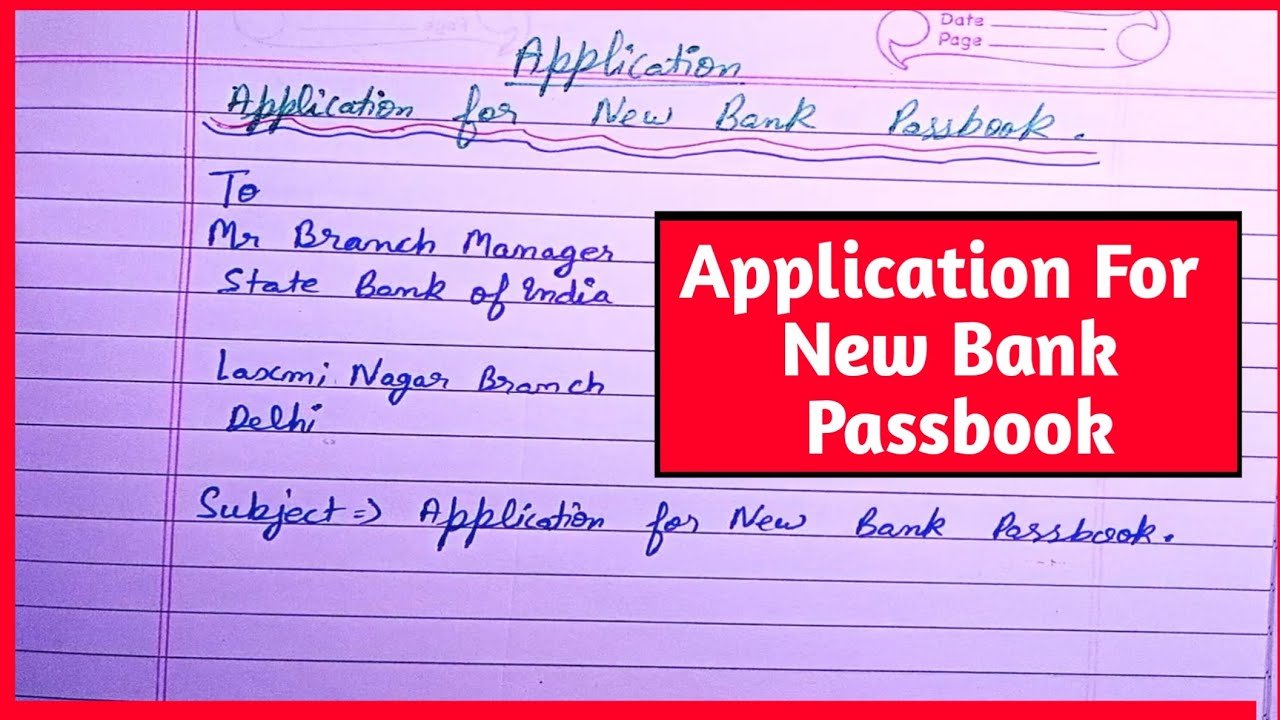 Date
Page
Application
Application for New Bank Passbook.
To
Mr Branch Manager
State Bank of India
Laxmi Nagar Branch
Delhi
Subject => Application for New Bank Passbook.
Application For
New Bank
Passbook